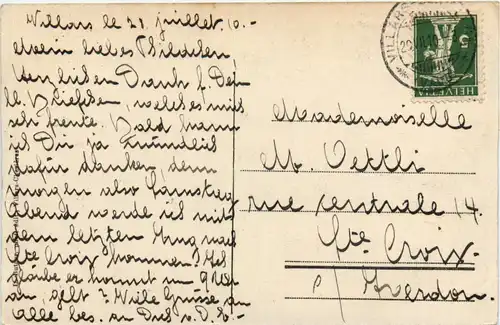 Villars le 21 juillet. 10.-
Mein liebes Friedchen
Herzlichen Dank f. Dein
lb. Briefchen, welches mich
sehr freute. Bald kann
ich Dir ja mündlich
dafür danken, denn
morgen also Samstag
Abend werde ich mit
dem letzten Zug nach
Ste Croix kommen! Ich
glaube er kommt um 9 Uhr
an, gelt? Viele Grüsse an
alle bes. an Dich v. D. E.-
VILLARS
HELVETIA
5
Mademoiselle
M. Oettli
rue centrale 14.
Ste. Croix
s/ Yverdon.